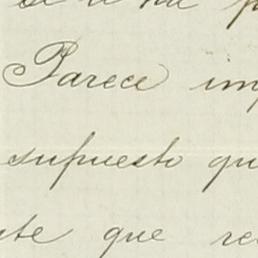 Parece im
supuesto qu
te que re